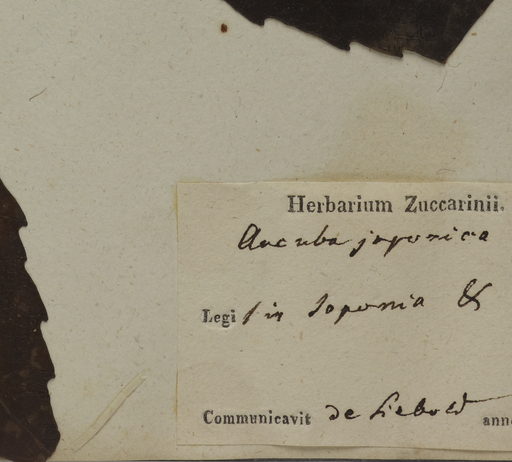 Herbarium Zuccarinii.
Aucuba japonica
Legi in Japonia
Communicavit de Siebold